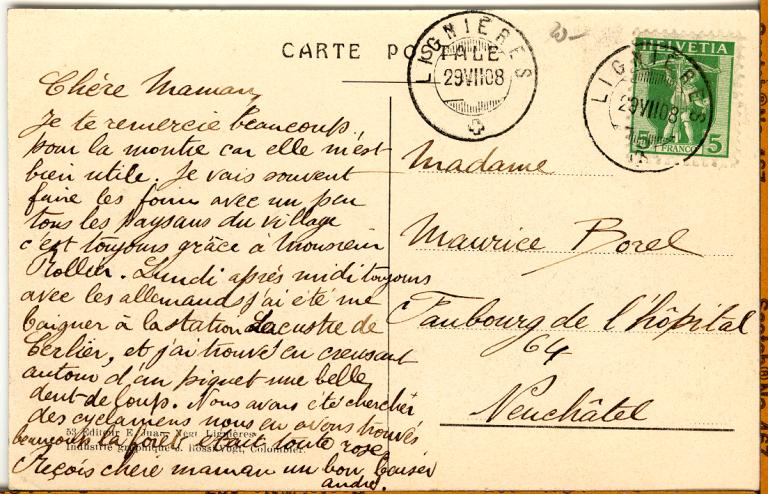 CARTE POSTALE
LIGNIÈRES
29 VII 08
LIGNIÈRES
29 VII 08
HELVETIA
5 FRANCO 5
Chère Maman,
Je te remercie beaucoup,
pour la montre car elle m'est
bien utile. Je vais souvent
faire les foins avec un peu
tous les paysans du village
c'est toujours grâce à Monsieur
Rollier. Lundi après midi toujours
avec les allemands j'ai été me
baigner à la station Lacustre de
Cerlier, et j'ai trouvé en creusant
autour d'un piquet une belle
dent de loup. Nous avons été chercher
des cyclamens nous en avons trouvés
beaucoup la forêt était toute rose
Reçois chère maman un bon baiser
andré.
Madame
Maurice Borel
Faubourg de l'hôpital
64
Neuchâtel
53 Editeur F. Juan, Négt Lignières
Industrie graphique J. Ross-Vogt, Colombier.